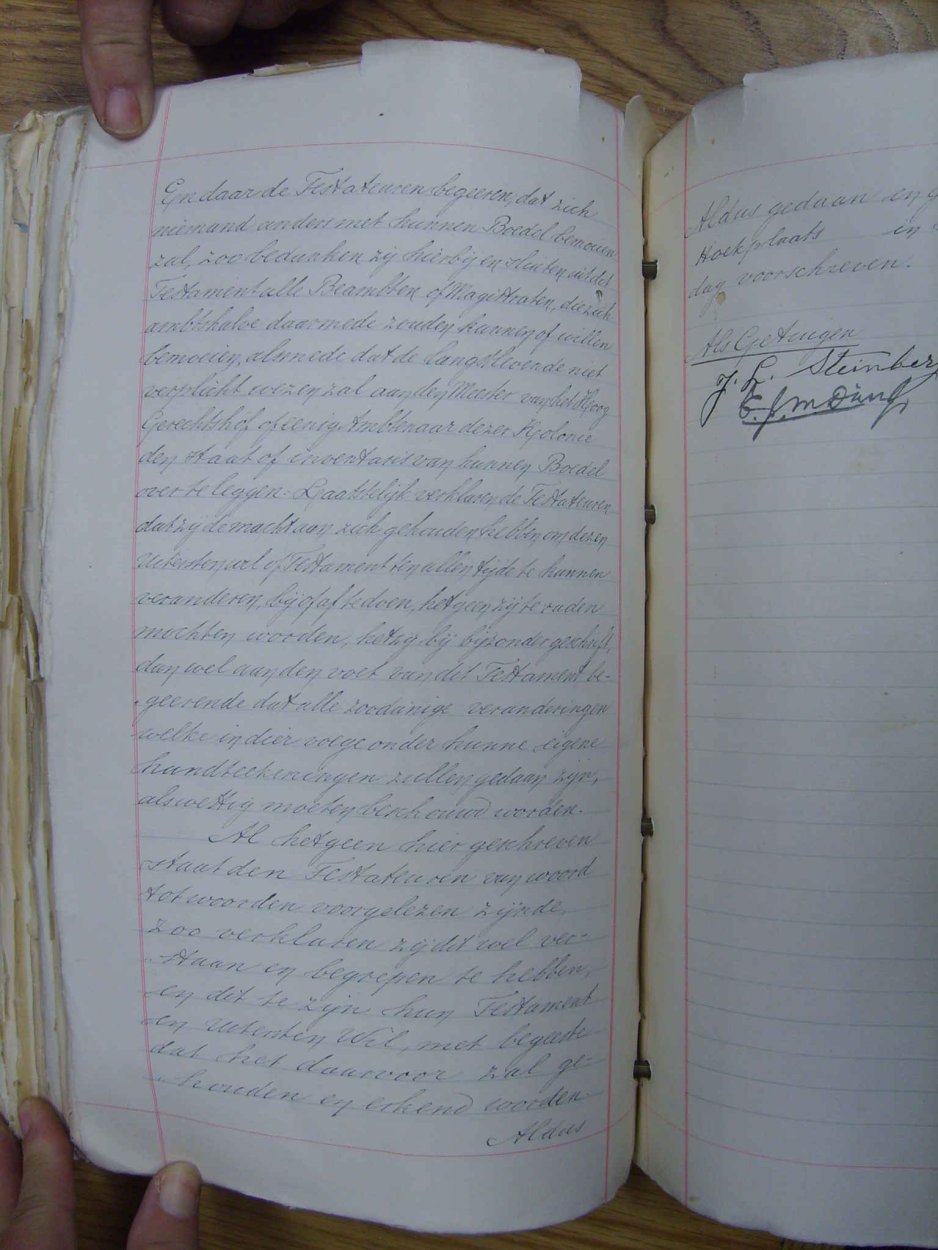 En daar de Testateuren begeeren, dat zich
niemand anders met hunnen Boedel bemoeien
zal, zoo bedanken zij hierbij en sluiten uit dit
Testament alle Beambten of Magistraten, die zich
ambtshalve daarmede zouden kunnen of willen
bemoeien, alsmede dat de langstlevende niet
verplicht wezen zal aan den Meester van het Hoog
Gerechtshof of eenig Ambtenaar dezer Kolonie
den staat of inventaris van hunnen Boedel
over te leggen. Laatstelijk verklaren de Testateuren
dat zij de macht aan zich gehouden hebben om dezen
Uitersten wil of Testament ten allen tijde te kunnen
veranderen, bij of af te doen, hetgeen zij te raden
mochten worden, hetzij bij bijzonder geschrift,
dan wel aan den voet van dit Testament, be-
geerende dat alle zoodanige veranderingen
welke in dier voege onder hunne eigene
handteekeningen zullen gedaan zijn,
als wettig moeten beschouwd worden.
Al hetgeen hier geschreven
staat den Testateuren van woord
tot woorden voorgelezen zijnde,
zoo verklaren zij dit wel ver-
staan en begrepen te hebben,
en dit te zijn hun Testament
en Uitersten Wil, met begeerte
dat het daarvoor zal ge-
houden en erkend worden
Aldus
Aldus gedaan en
Hoekplaats in
dag voorschreven.
Als Getuigen
J. L. Steinber